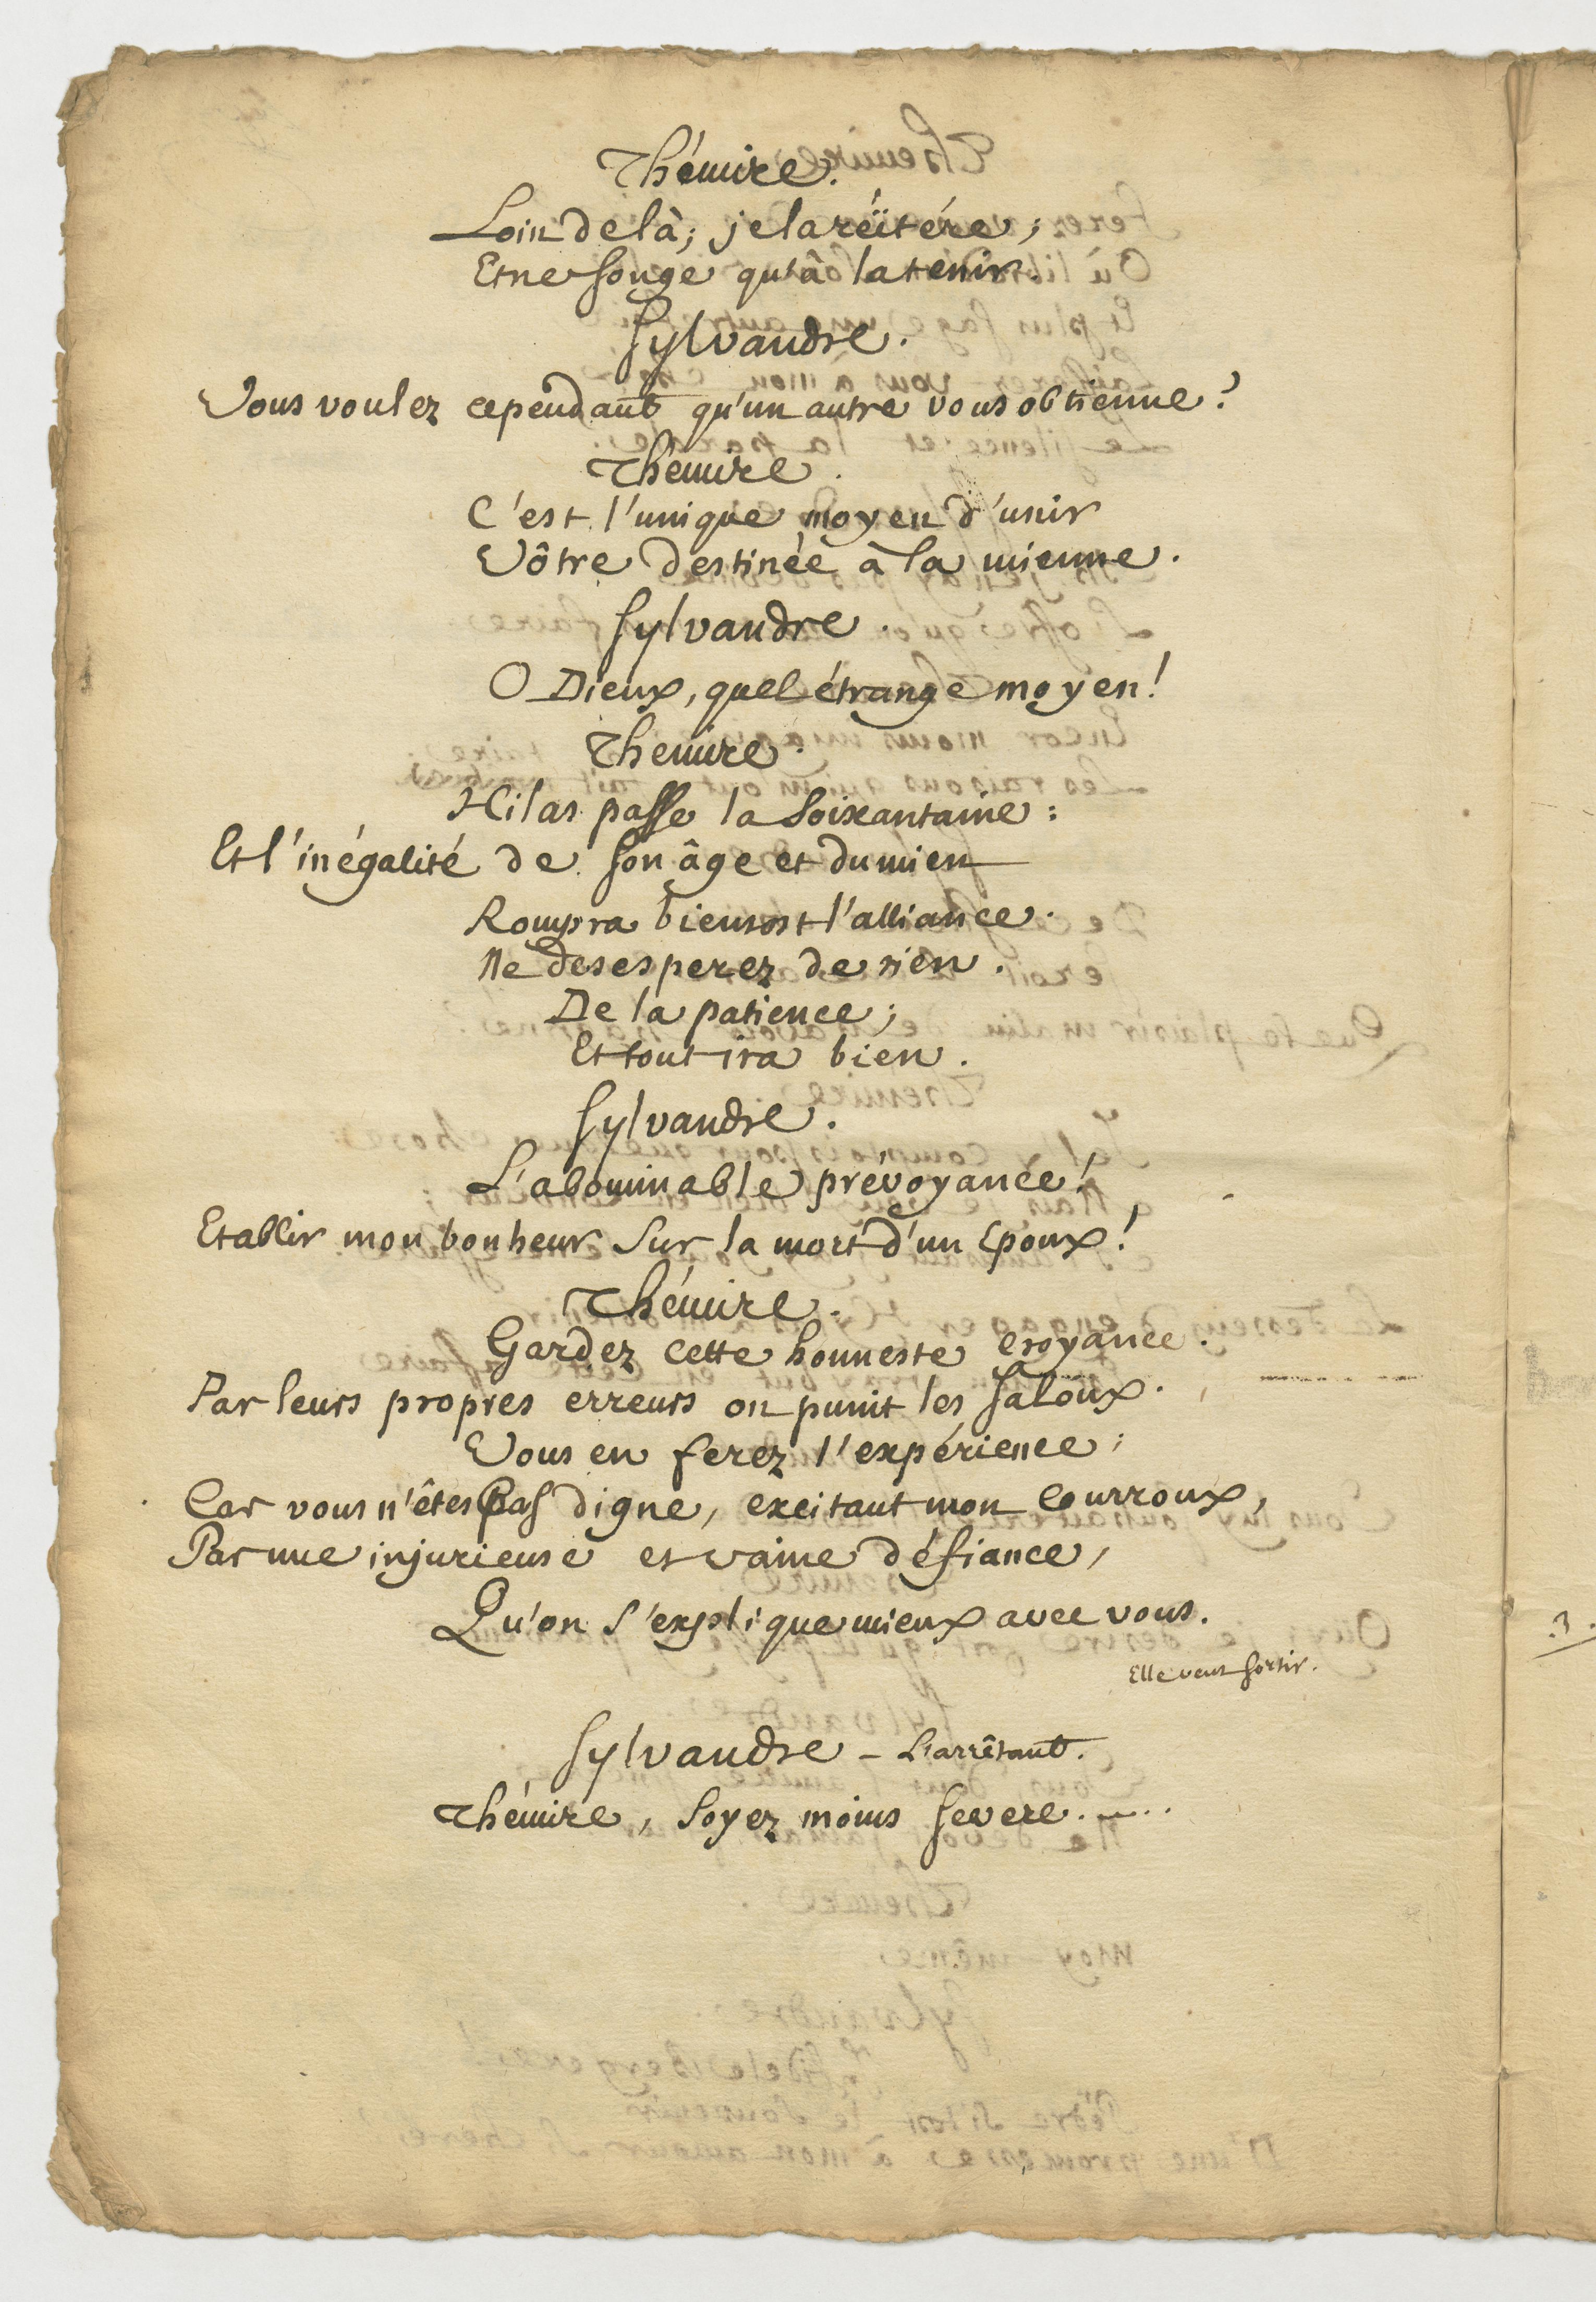 Thémire.
Loin de là; je la réïtére;
Et ne songe qu'à la tenir.
Sylvandre.
Vous voulez cependant qu'un autre vous obtienne?
Thémire.
C'est l'unique moyen d'unir
Vôtre destinée à la mienne.
Sylvandre.
O Dieux, quel étrange moyen!
Themire.
Hilas passe la soixantaine:
Et l'inégalité de son âge et du mien
Rompra bientost l'alliance.
Ne desesperez de rien.
De la patience;
Et tout ira bien.
Sylvandre.
L'abominable prévoyance!
Etablir mon bonheur sur la mort d'un Epoux!
Thémire.
Gardez cette honneste croyance.
Par leurs propres erreurs on punit les Jaloux.
Vous en ferez l'expérience;
Car vous n'êtes pas digne, excitant mon courroux,
Par une injurieuse et vaine défiance,
Qu'on s'explique mieux avec vous.
Elle veut sortir.
Sylvandre - L'arrêtant.
Thémire, soyez moins severe.....